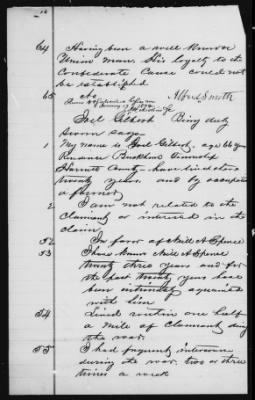 64 Having been a well known
Union man. His loyalty to the
Confederate Cause could not
be established
65 No Alfred Smith
Sworn & Subscribed before me
January 13
Joel Gilbert Being duly
sworn says
1 My name is Joel Gilbert, age 66 years
Residence Buckhorn Township
Harnett County have lived there
twenty years. and by occupation
a farmer
2 I am not related to the
claimant or interested in the
claim
52 In favor of Neill A Spence
53 I have known Neill A Spence
twenty three years and for
the last twenty years have
been intimately acquainted
with him
54 Lived within one half
a mile of claimant during
the war.
55 I had frequent intercourse
during the war. two or three
times a week